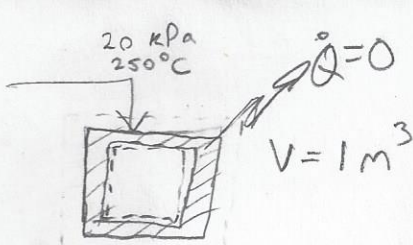 20 kPa
250°C
Q̇=0
V = 1 m³